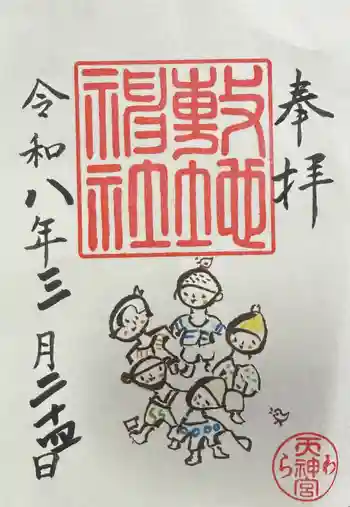 奉拝
敷地
神社
令和八年三月二十四日
わら
天神宮